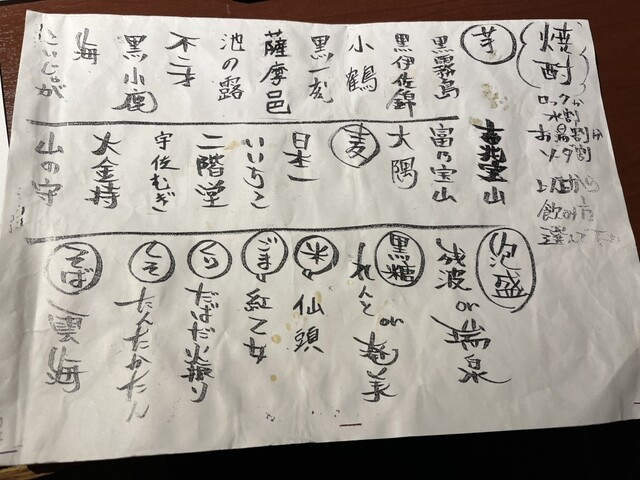 焼酎
ロックか
水割
お湯割か
ソーダ割
上記から
飲み方
芋
黒霧島
黒伊佐錦
小鶴
黒一刻
薩摩邑
池の露
不二才
黒小鹿
海
吉兆宝山
富乃宝山
大隅
麦
日本一
いいちこ
二階堂
宇佐むぎ
大金持
山の守
泡盛
残波 or 瑞泉
黒糖
れんと or 奄美
米
仙頭
ごま
紅乙女
くり
だばだ火振り
しそ
たんたかたん
そば
雲海